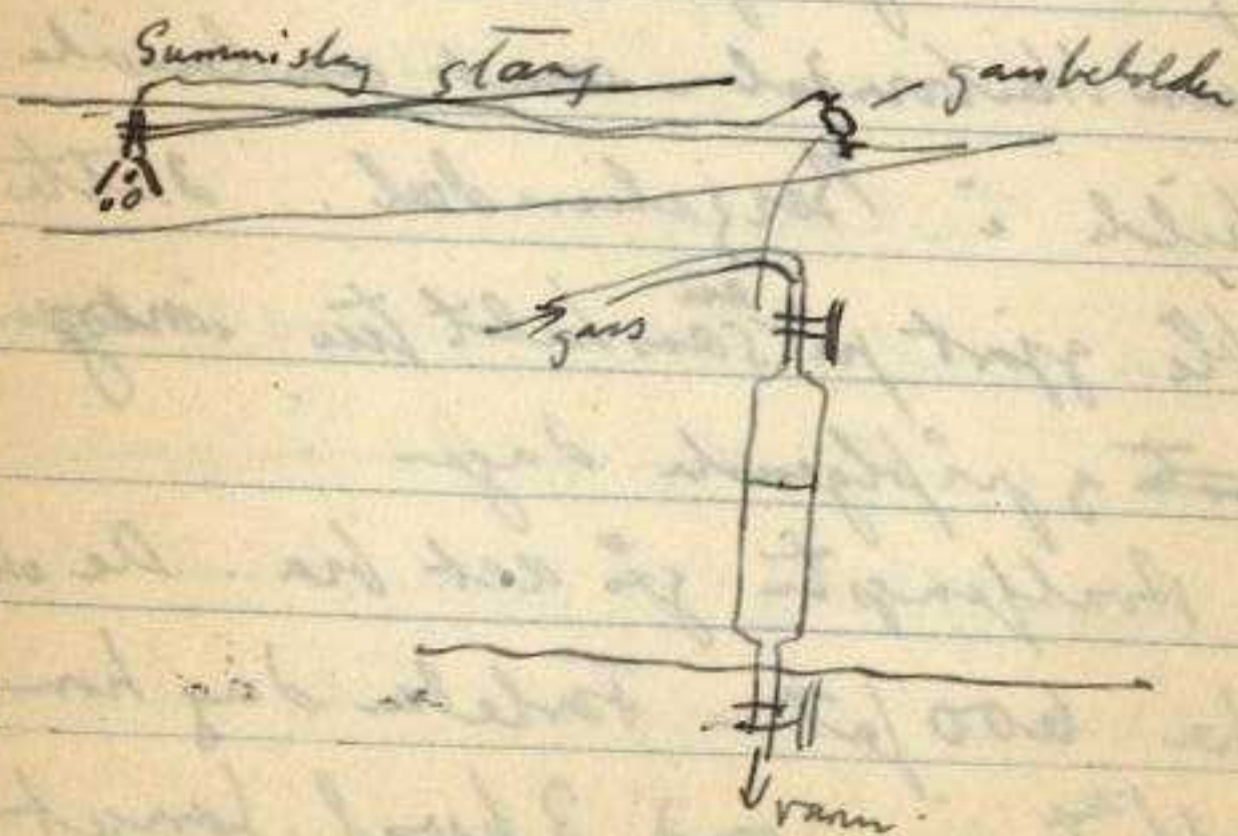 Gummislang stång gassbeholder
gass
vann